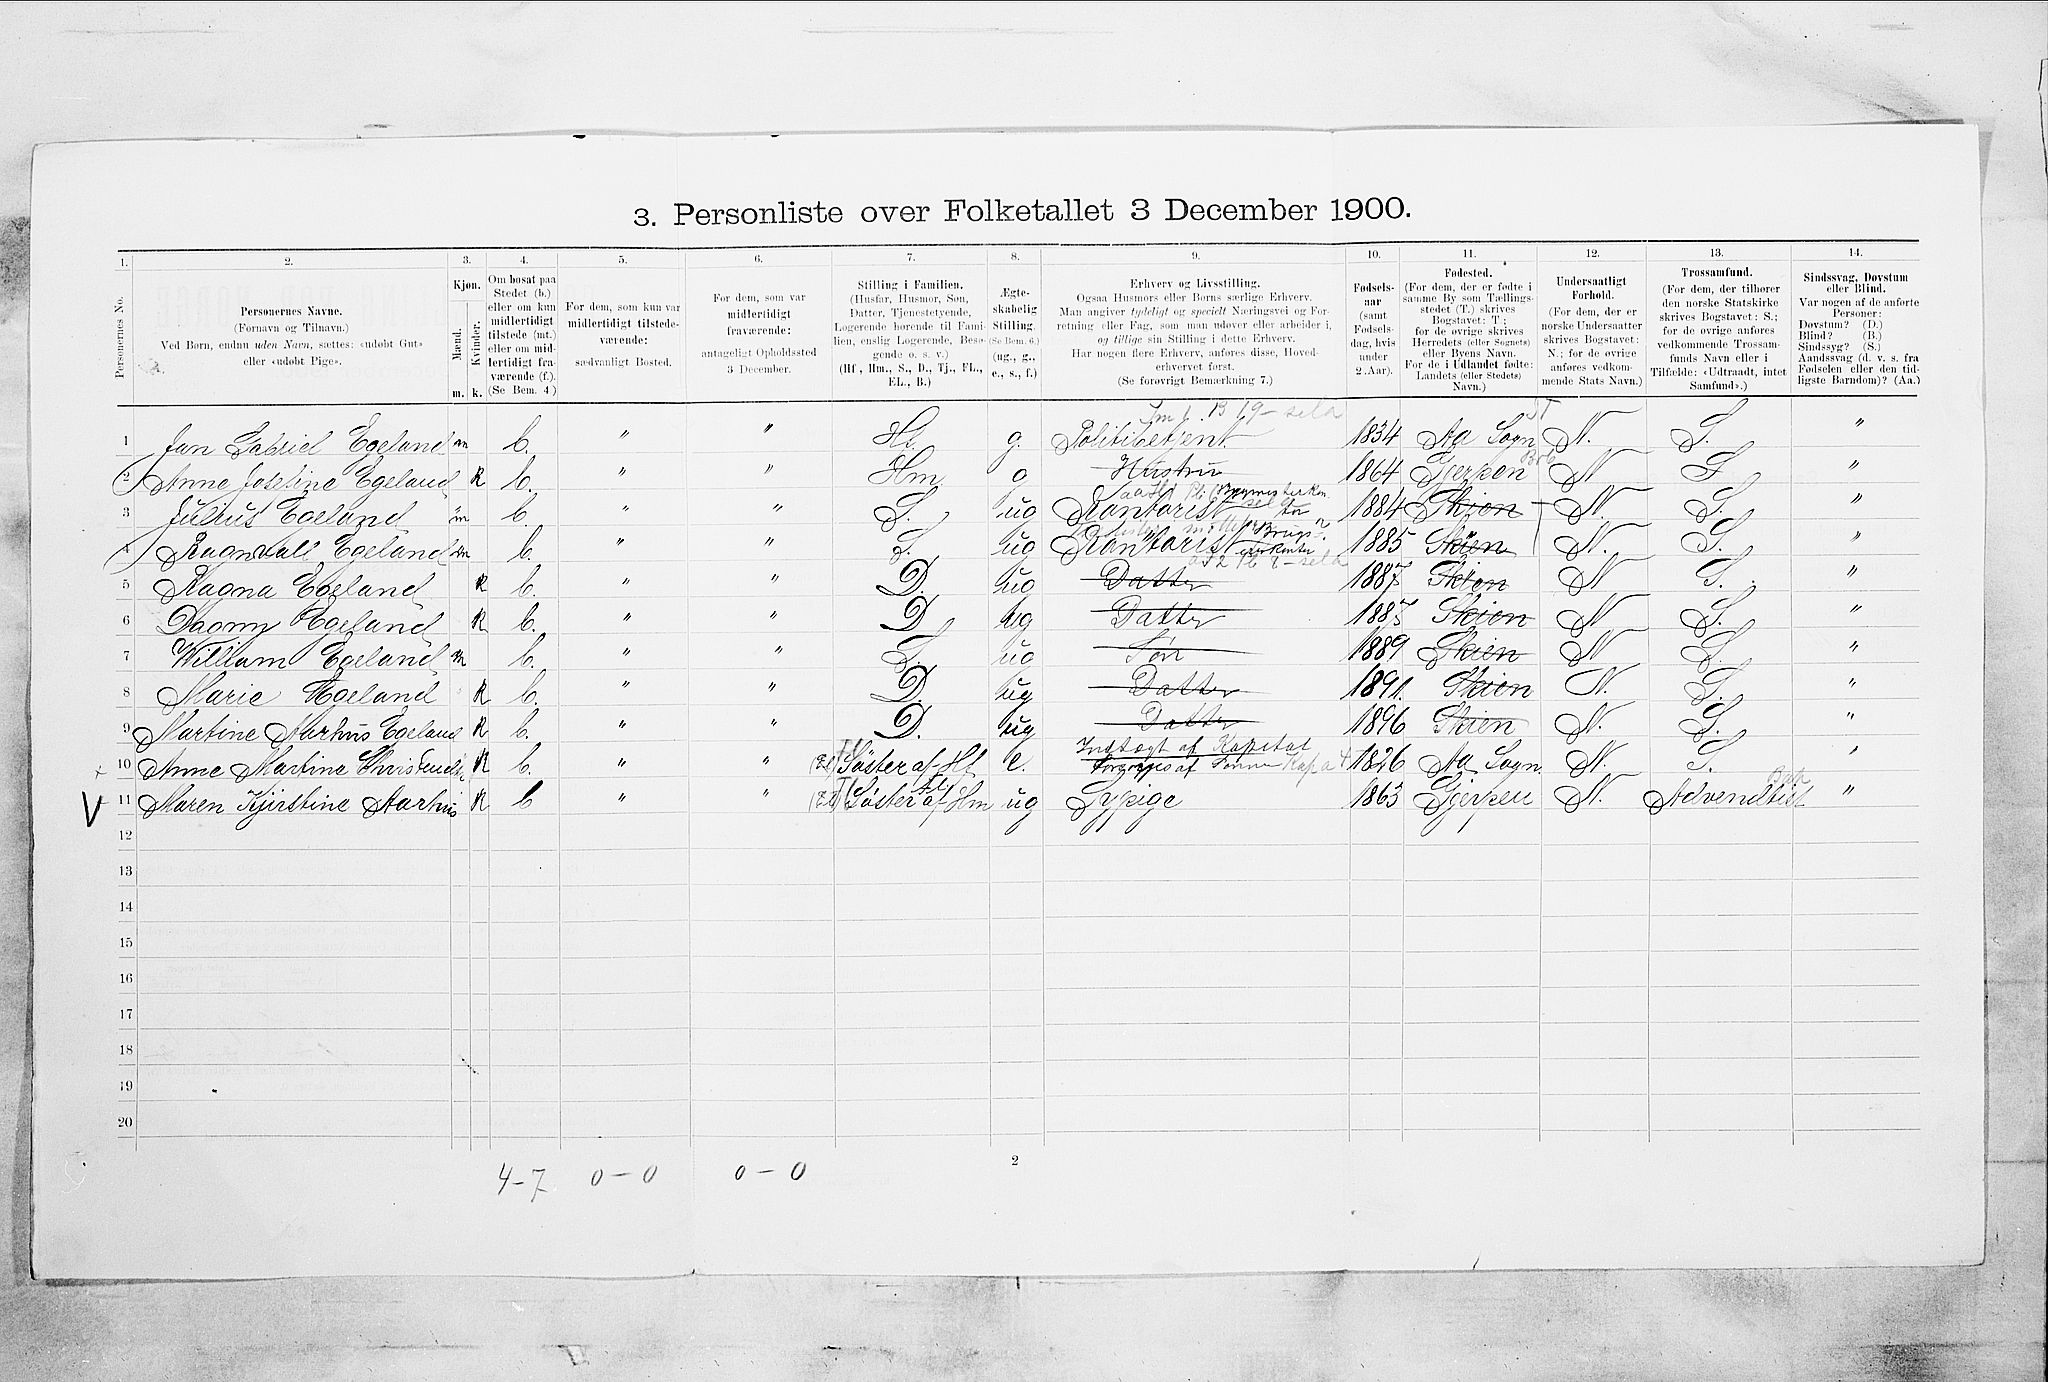 3. Personliste over Folketallet 3 December 1900.
1. 2. 3. 4. 5. 6. 7. 8. 9. 10. 11. 12. 13. 14.
Personernes No.
Personernes Navne.
(Fornavn og Tilnavn.)
Ved Børn, endnu uden Navn, sættes: «udøbt Gut»
eller «udøbt Pige».
Kjøn.
Mænd.
Kvinder.
m. k.
Om bosat paa
Stedet (b.)
eller om kun
midlertidigt
tilstede (mt.)
eller om mid-
lertidigt fra-
værende (f.).
(Se Bem. 4)
For dem, som kun var
midlertidigt tilstede-
værende:
sædvanligt Bosted.
For dem, som var
midlertidigt
fraværende:
antageligt Opholdssted
3 December.
Stilling i Familien.
(Husfar, Husmor, Søn,
Datter, Tjenestetyende,
Logerende hørende til Fami-
lien, enslig Logerende, Besø-
gende o. s. v.)
(Hf, Hm., S., D., Tj., FL.,
EL., B.)
Ægte-
skabelig
Stilling.
(Se Bem. 6.)
(ug., g.,
e., s., f.)
Erhverv og Livsstilling.
Ogsaa Husmors eller Børns særlige Erhverv.
Man angiver tydeligt og specielt Næringsvei og For-
retning eller Fag, som man udøver eller arbeider i,
og tillige sin Stilling i dette Erhverv.
Har nogen flere Erhverv, anføres disse, Hoved-
erhvervet først.
(Se forøvrigt Bemerkning 7.)
Fødsels-
aar
(samt
Fødsels-
dag, hvis
under
2 Aar).
Fødested.
(For dem, der er fødte i
samme By som Tællings-
stedet (T.) skrives
Bogstavet: T;
for de øvrige skrives
Herredets (eller Sognets)
eller Byens Navn.
For de i Udlandet fødte:
Landets (eller Stedets)
Navn.)
Undersaatligt
Forhold.
(For dem, der er
norske Undersaatter
skrives Bogstavet:
N.; for de øvrige
anføres vedkom-
mende Stats Navn.)
Trossamfund.
(For dem, der tilhører
den norske Statskirke
skrives Bogstavet: S.;
for de øvrige anføres
vedkommende Trossam-
funds Navn eller i
Tilfælde: «Udtraadt, intet
Samfund».)
Sindssvag, Døvstum
eller Blind.
Var nogen af de anførte
Personer:
Døvstum? (D.)
Blind? (B.)
Sindssyg? (S.)
Aandssvag (d. v. s. fra
Fødselen eller den tid-
ligste Barndom)? (Aa.)
1 Jan Gabriel Egeland m b. " " Hf g. Politibetjent 1834 Aa Sogn N. S. "
2 Anne Josefine Egeland K b. " " Hm g Hustru 1864 Gjerpen N S "
3 Julius Egeland m b. " " S. ug Kontorist 1884 Skien N. S. "
4 Ragnvall Egeland m b. " " S. ug Kontorist 1885 Skien N. S. "
5 Ragna Egeland K b. " " D. ug Datter 1887 Skien N S. "
6 Dagny Egeland K b. " " D ug Datter 1887 Skien N S. "
7 William Egeland m b. " " S. ug Søn 1889 Skien N S. "
8 Marie Egeland K b. " " D. ug Datter 1891. Skien N. S. "
9 Martine Aarhus Egeland K b. " " D. ug Datter 1896 Skien N. S. "
Indtægt af Kapital
10 Anne Martine K b. " " Søster af Hf e. 1826 Aa Sogn N. S. "
V 11 Maren Kjirstine Aarhus K b " " Søster af Hm ug Sypige 1863 Gjerpen N. Advendtist "
12
13
14
15
16
17
18
19
20
2
4-7 0-0 0-0